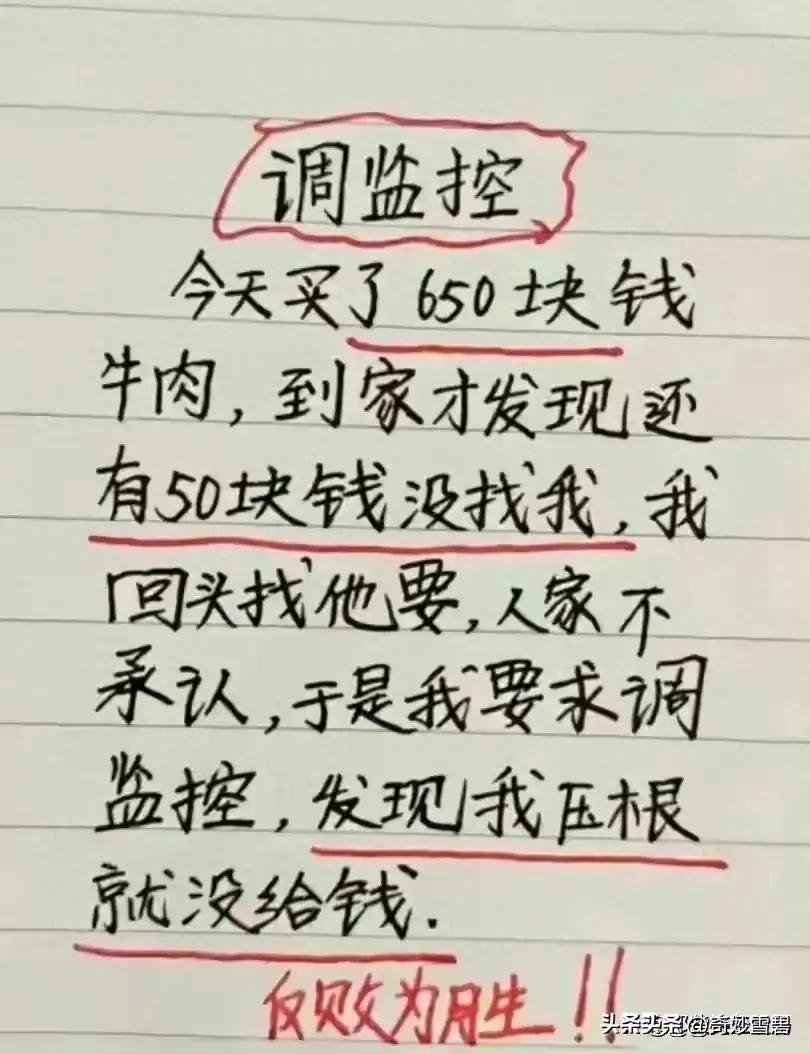 调监控
今天买了650块钱
牛肉,到家才发现还
有50块钱没找我,我
回头找他要,人家不
承认,于是我要求调
监控,发现我压根
就没给钱.
反败为胜!!